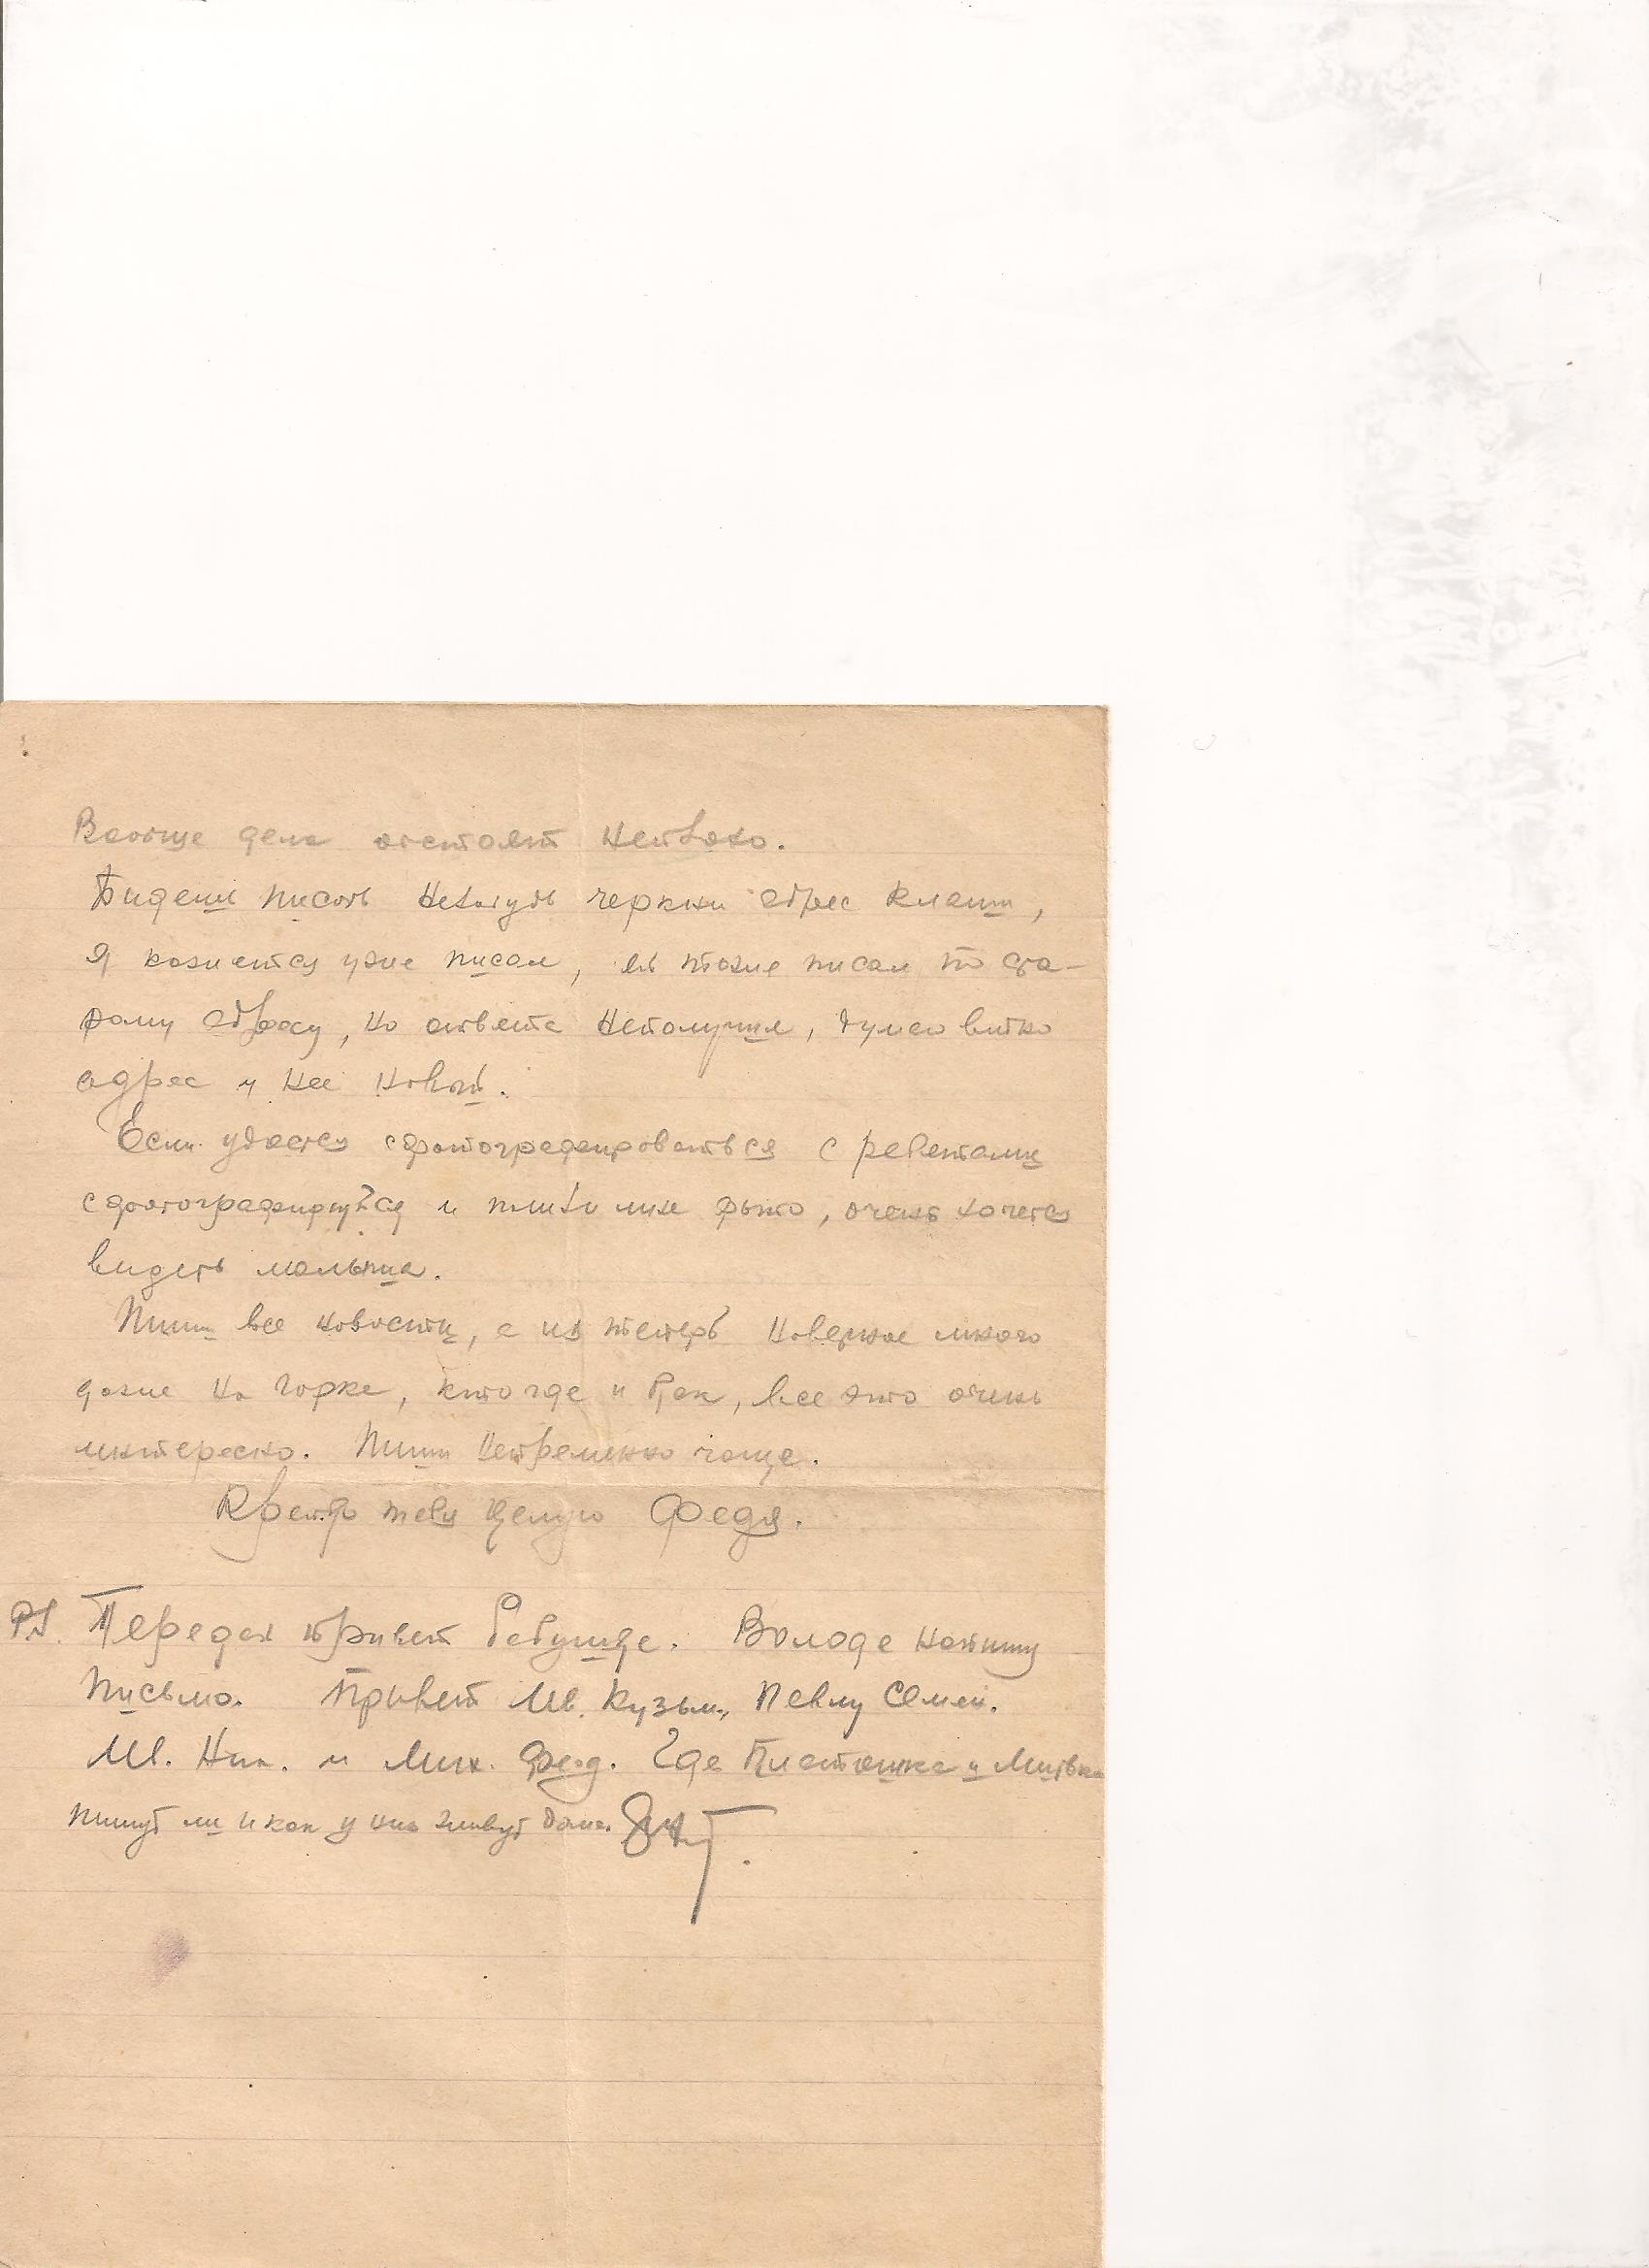 Вообще дела обстоят неплохо.
Будешь писать незабудь черкни адрес Клавы,
Я кажется уже писал, ей тоже писал по ста-
рому адресу, но ответа неполучил, думаю видно
адрес у нее новый.
Если удастся сфотографироваться с ребятами
сфотографируйся и пришли мне фото, очень хочется
видеть мальца.
Пиши все новости, а их теперь наверное много
даже на горке, кто где и как, все это очень
интересно. Пиши непременно чаще.
Крепко тебя целую Федя.
P.S. Передай привет бабушке. Володе напишу
письмо. Привет Ив. Кузьм., Павлу Семен.
Ив. Ник. и Мих. Фед. Где и Митька
пишут ли и как у них живут дома.